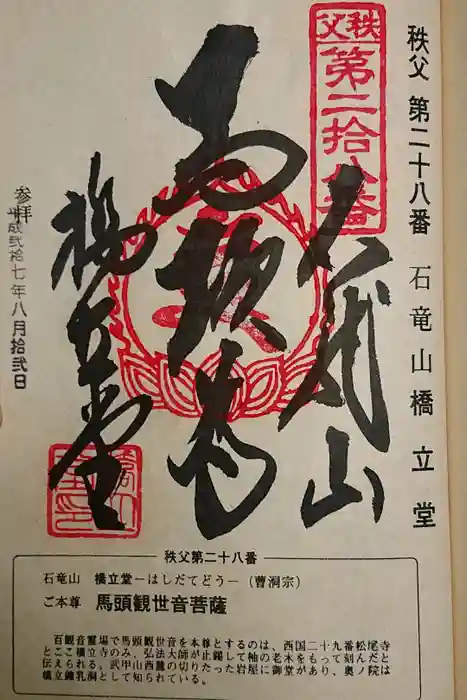 秩父 第二十八番 石竜山橋立堂
秩父
第二拾八番
石竜山
馬頭尊
橋立堂
参拝
平成弐拾七年八月拾弐日
秩父第二十八番
石竜山 橋立堂－はしだてどう－（曹洞宗）
ご本尊 馬頭観世音菩薩
百観音霊場で馬頭観世音を本尊とするのは、西国二十九番松尾寺
とここ橋立寺のみ、弘法大師が止錫して柚の老木をもって刻んだと
伝えられる。武甲山西麓の切りたった岩屋に御堂があり、奥ノ院は
橋立鍾乳洞として知られている。